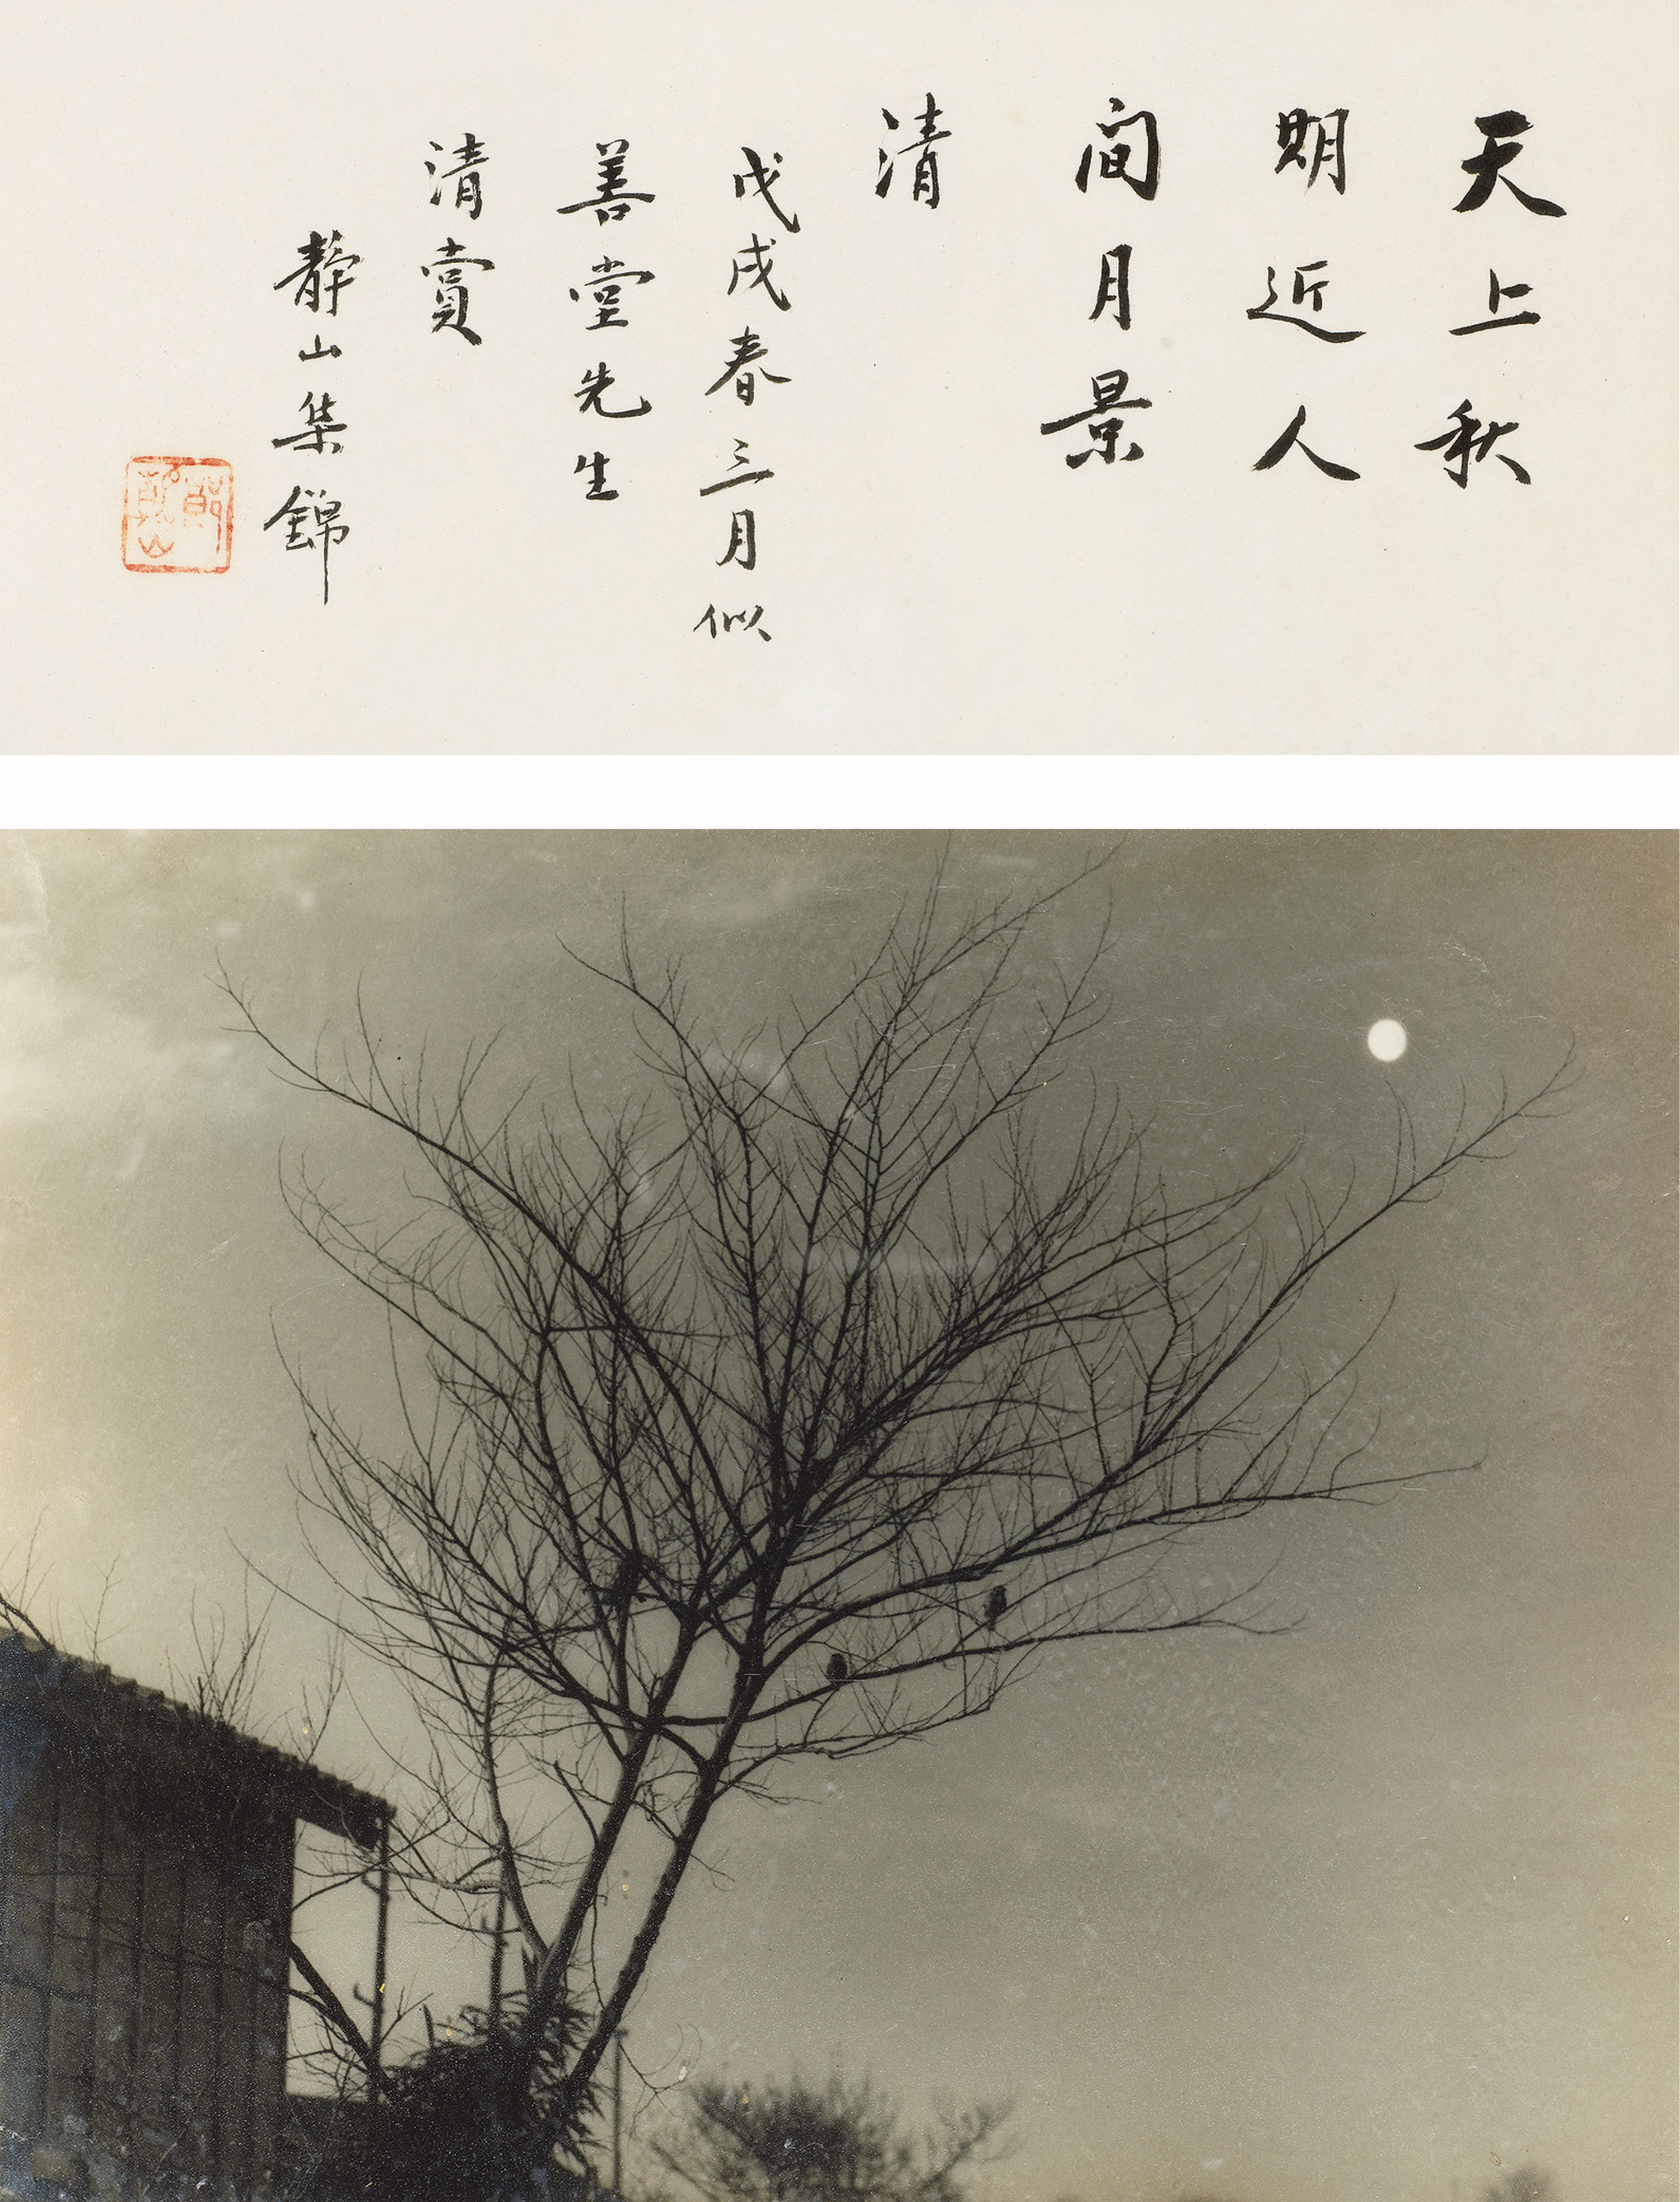 天上秋
期近人
間月景
清
戊戌春三月似
善堂先生
清賞
静山集錦
郎静山